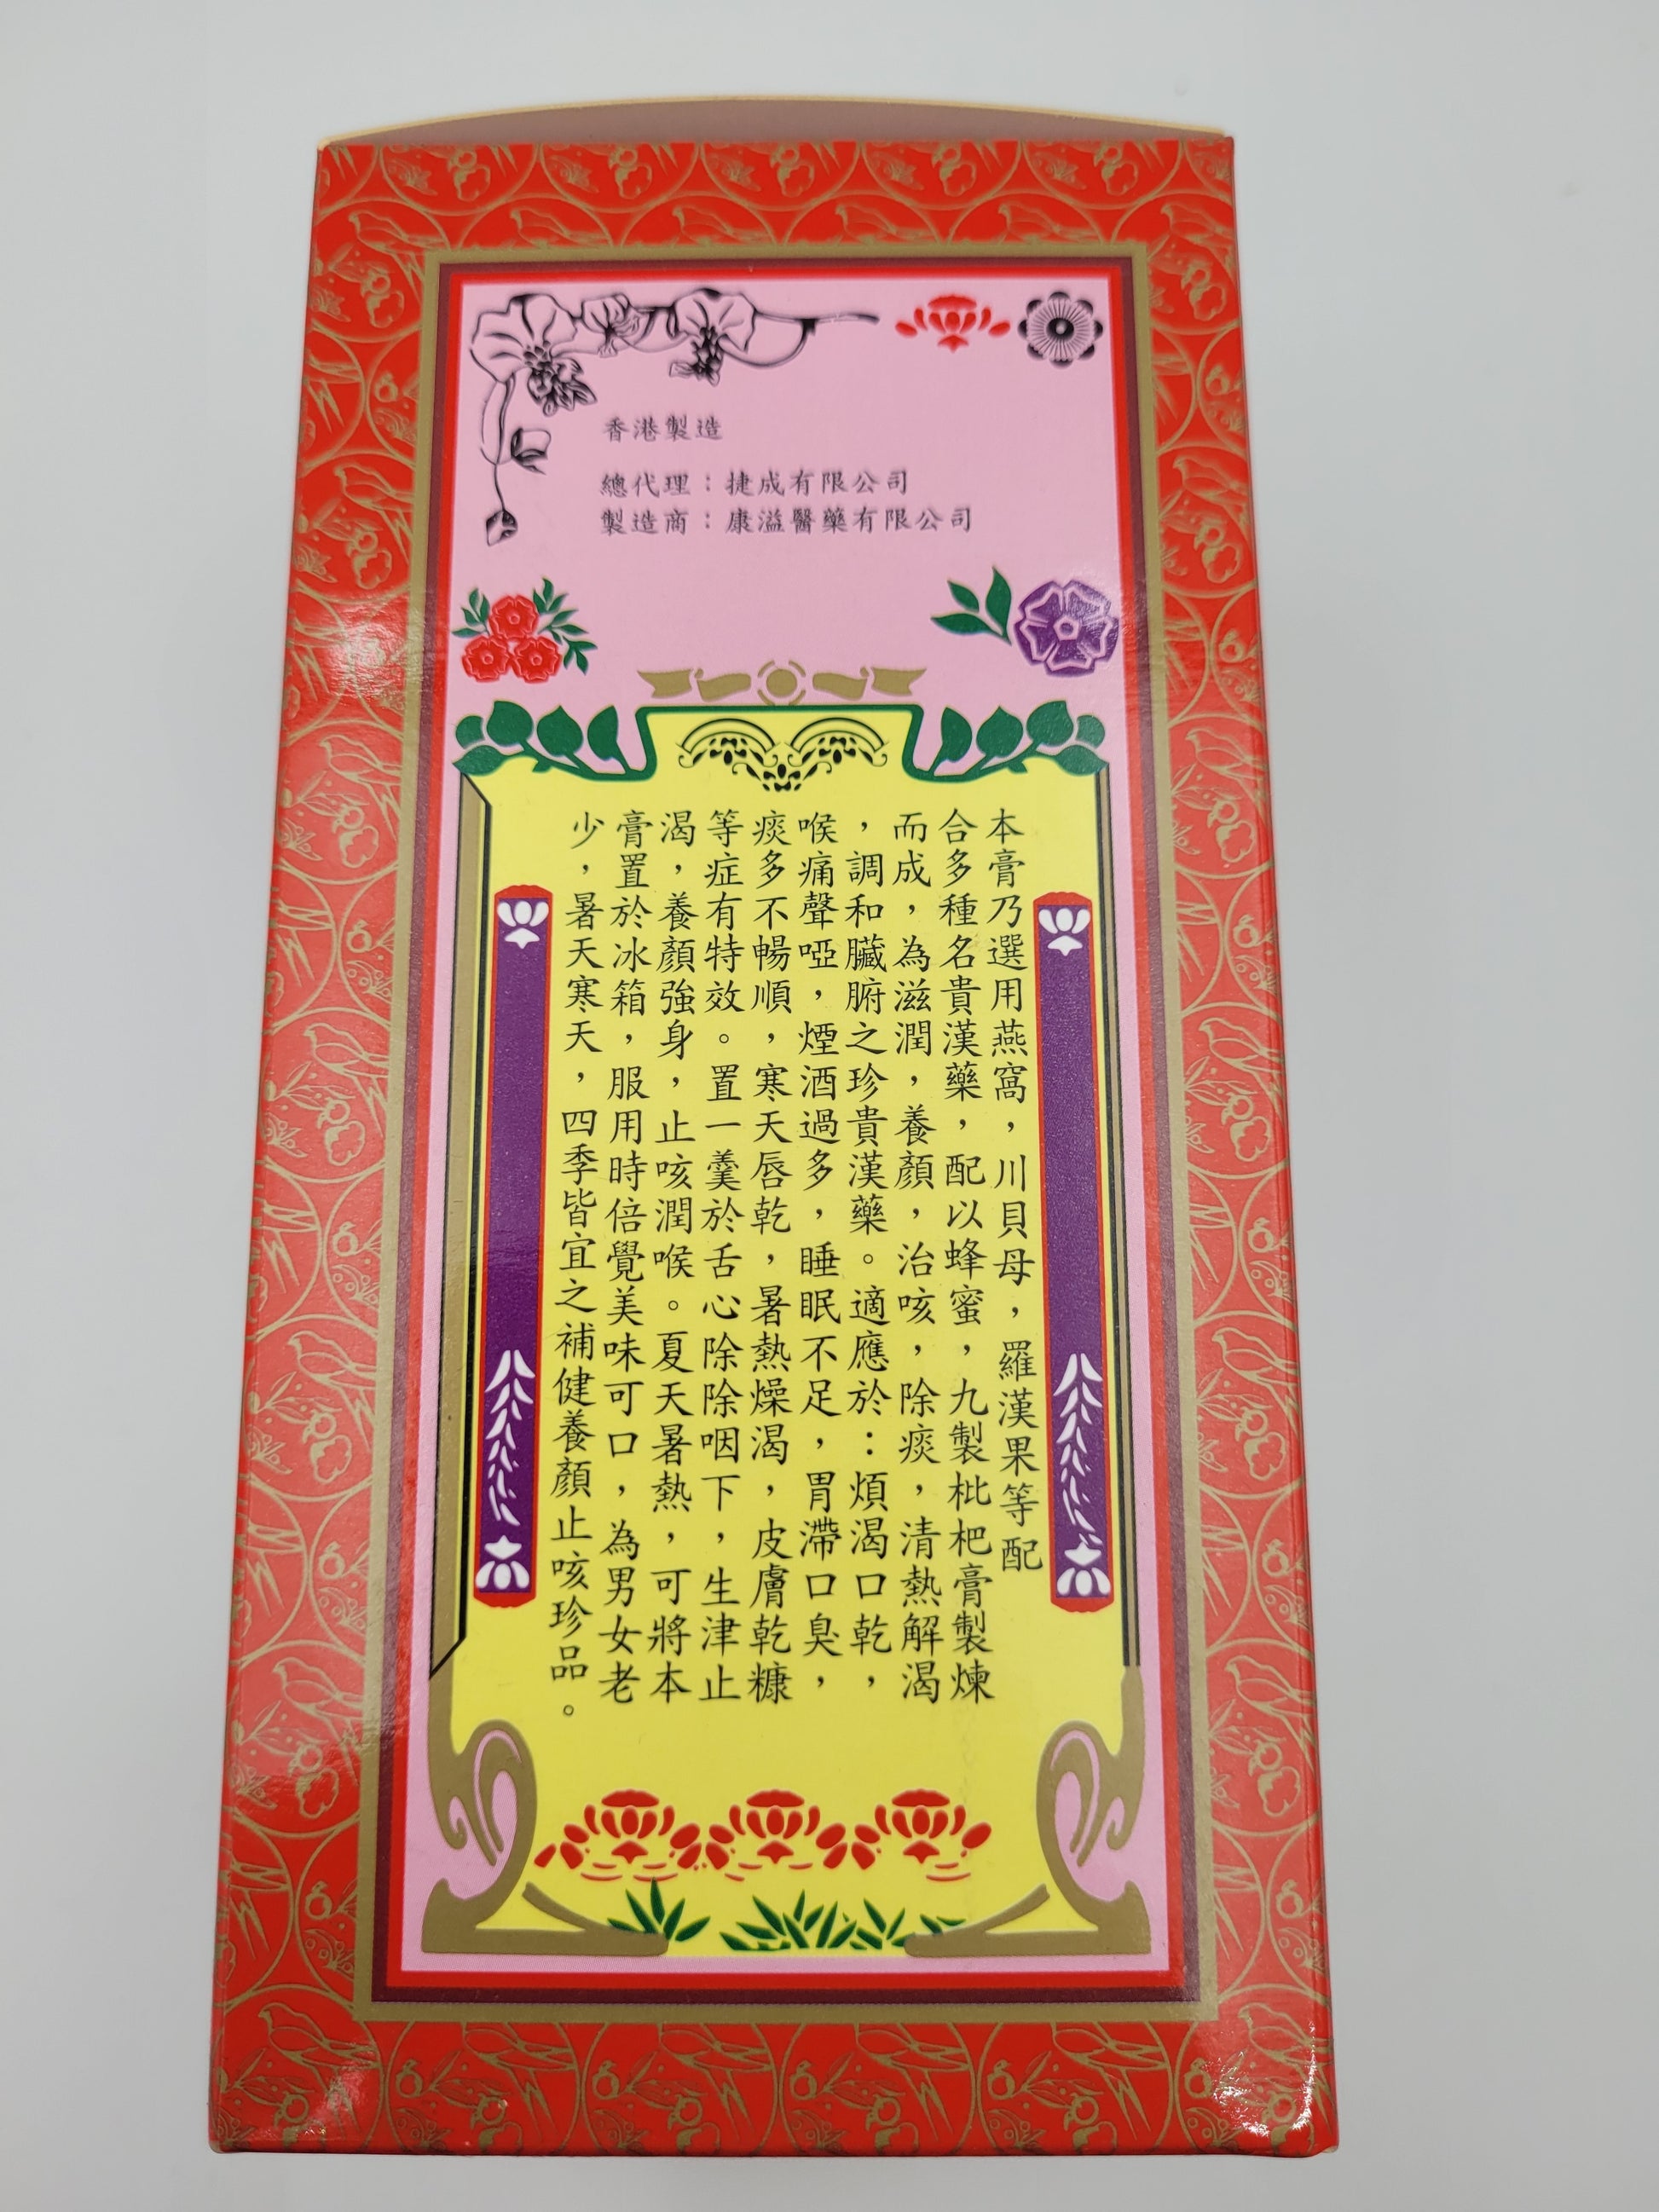 香港製造
總代理：捷成有限公司
製造商：康溢醫藥有限公司
本膏乃選用燕窩，川貝母，羅漢果等配
合多種名貴漢藥，配以蜂蜜，九製枇杷膏製煉
而成，為滋潤，養顏，治咳，除痰，清熱解渴
，調和臟腑之珍貴漢藥。適應於：煩渴口乾，
喉痛聲啞，煙酒過多，睡眠不足，胃滯口臭，
痰多不暢順，寒天唇乾，暑熱燥渴，皮膚乾糠
等症有特效。置一羹於舌心除除咽下，生津止
渴，養顏強身，止咳潤喉。夏天暑熱，可將本
膏置於冰箱，服用時倍覺美味可口，為男女老
少，暑天寒天，四季皆宜之補健養顏止咳珍品。